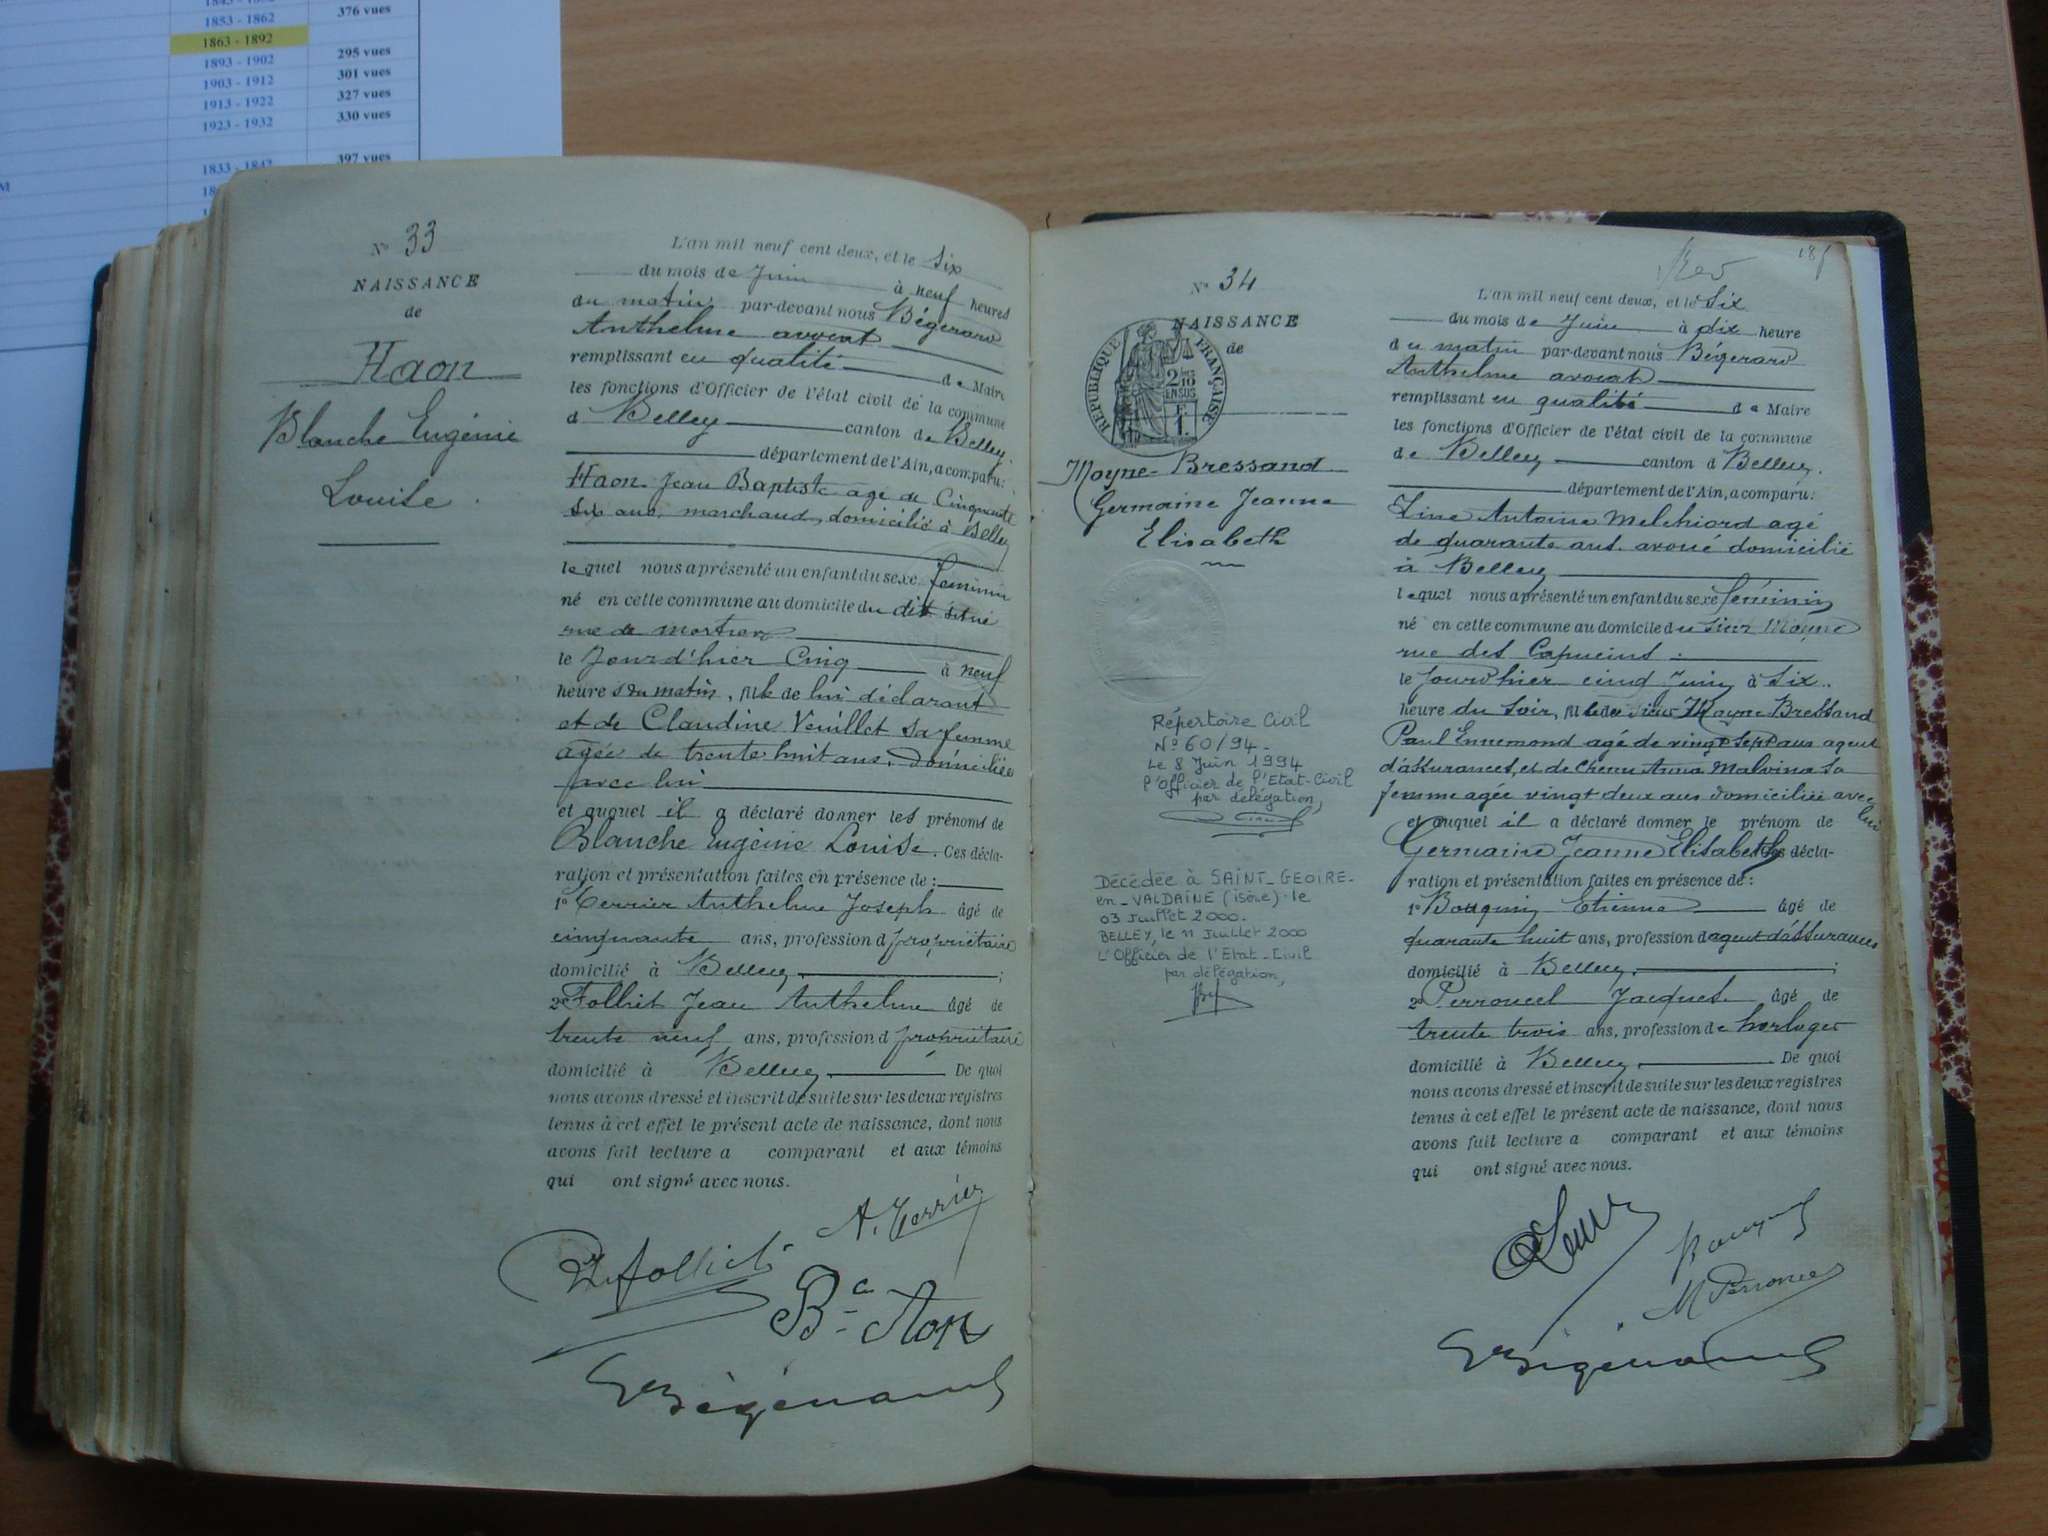 1853 - 1862 376 vues
1863 - 1892
1893 - 1902 295 vues
1903 - 1912 301 vues
1913 - 1922 327 vues
1923 - 1932 330 vues
1833 - 1842 397 vues
M
N° 33
NAISSANCE
de
Haon
Blanche Eugénie
Louise
L'an mil neuf cent deux, et le six
du mois de Juin à neuf heures
du matin par-devant nous Bégerard
Anthelme avocat
remplissant en qualité de Maire
les fonctions d'Officier de l'état civil de la commune
d Belley canton de Belley.
département de l'Ain, a comparu:
Haon Jean Baptiste agé de Cinquante
six ans, marchand, domicilié à Belley
lequel nous a présenté un enfant du sexe feminin
né en cette commune au domicile du dit situé
rue de
le Jourd'hier Cinq à neuf
heures du matin, fille de lui déclarant
et de Claudine Veuillet sa femme
agée de trente huit ans, domiciliée
avec lui
et auquel il a déclaré donner les prénoms de
Blanche Eugénie Louise. Ces décla-
ration et présentation faites en présence de:
1° Terrier Anthelme Joseph âgé de
cinquante ans, profession d propriétaire
domicilié à Belley;
2° Folliet Jean Anthelme âgé de
trente neuf ans, profession d propriétaire
domicilié à Belley. De quoi
nous avons dressé et inscrit de suite sur les deux registres
tenus à cet effet le présent acte de naissance, dont nous
avons fait lecture a comparant et aux témoins
qui ont signé avec nous.
A. Terrier
folliet
Haon
Bégerard
185
N° 34
NAISSANCE
de
RÉPUBLIQUE FRANÇAISE
2/10 EN SUS
Moyne-Bressand
Germaine Jeanne
Elisabeth
Répertoire Civil
N° 60/94 -
Le 8 Juin 1994
l'Officier de l'Etat-Civil
par délégation,
Décédée à SAINT-GEOIRE-
en-VALDAINE (isère) le
03 Juillet 2000.
BELLEY, le 11 Juillet 2000
L'Officier de l'Etat-Civil
par délégation,
L'an mil neuf cent deux, et le six
du mois de Juin à dix heure
du matin par-devant nous Bégerard
Anthelme avocat
remplissant en qualité de Maire
les fonctions d'Officier de l'état civil de la commune
de Belley canton d Belley.
département de l'Ain, a comparu:
Antoine Melchiord agé
de quarante ans. avoué domicilié
à Belley
lequel nous a présenté un enfant du sexe féminin
né en cette commune au domicile du sieur Moyne
rue des Capucins.
le Jourd'hier cinq Juin à six
heure du soir, fille de sieur Moyne Bressand
Paul Ennemond agé de vingt sept ans agent
d'assurances, et de Chenu Anna Malvina sa
femme agée vingt deux ans domiciliée avec lui
et auquel il a déclaré donner le prénom de
Germaine Jeanne Elisabeth Ces décla-
ration et présentation faites en présence de:
1° Bouquin Etienne âgé de
quarante huit ans, profession d agent d'assurances
domicilié à Belley;
2° Perroucel Jacques âgé de
trente trois ans, profession de horloger
domicilié à Belley. De quoi
nous avons dressé et inscrit de suite sur les deux registres
tenus à cet effet le présent acte de naissance, dont nous
avons fait lecture a comparant et aux témoins
qui ont signé avec nous.
Bégerard